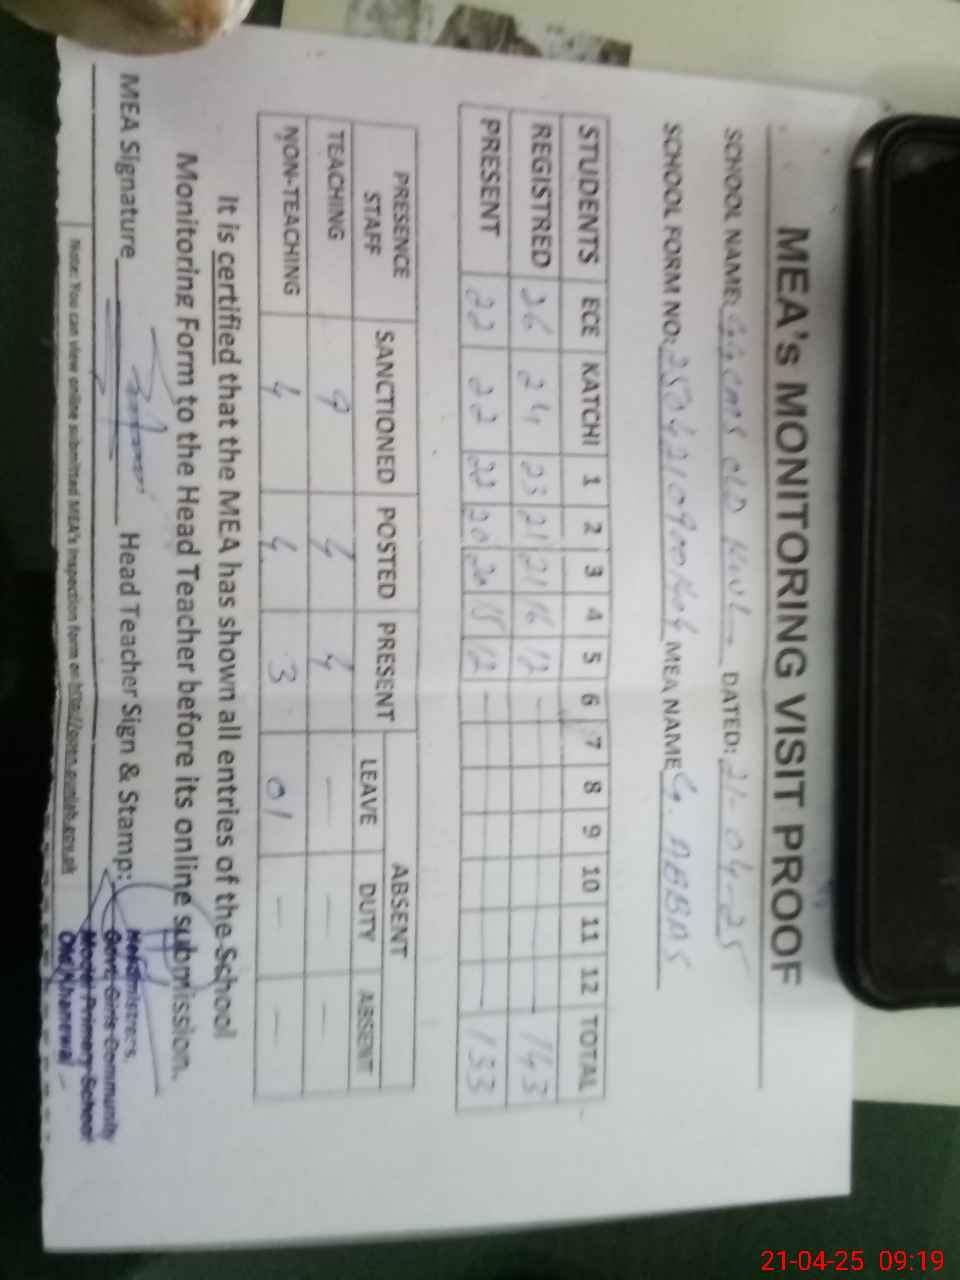 MEA's MONITORING VISIT PROOF
SCHOOL NAME: GGCMS OLD KWL DATED: 21-04-25
SCHOOL FORM NO: MEA NAME G. ABBAS
STUDENTS ECE KATCHI 1 2 3 4 5 6 7 8 9 10 11 12 TOTAL
REGISTRED 26 24 23 21 21 16 12 - 143
PRESENT 22 22 22 20 20 15 12 - 133
PRESENCE ABSENT
STAFF SANCTIONED POSTED PRESENT LEAVE DUTY ABSENT
TEACHING 9 4 4 - - -
NON-TEACHING 4 4 3 01 - -
It is certified that the MEA has shown all entries of the School
Monitoring Form to the Head Teacher before its online submission.
MEA Signature Head Teacher Sign & Stamp:
Headmistress,
Govt. Girls Community
Model Primary School
Old Khanewal
Note: You can view online submitted MEA's inspection form on http://open.punjab.gov.pk
21-04-25 09:19